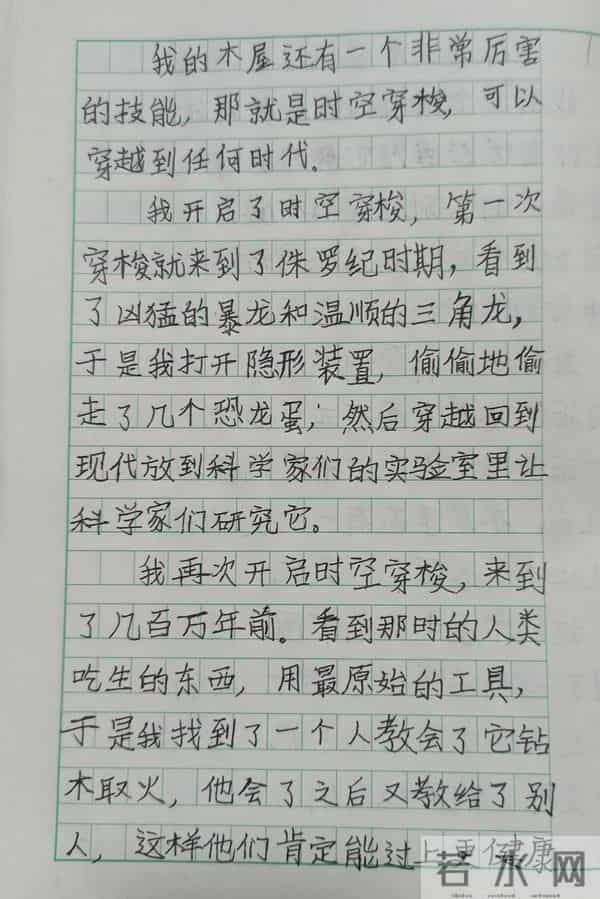 我的木屋还有一个非常厉害
的技能，那就是时空穿梭，可以
穿越到任何时代。
我开启了时空穿梭，第一次
穿梭就来到了侏罗纪时期，看到
了凶猛的暴龙和温顺的三角龙，
于是我打开隐形装置，偷偷地偷
走了几个恐龙蛋，然后穿越回到
现代放到科学家们的实验室里让
科学家们研究它。
我再次开启时空穿梭，来到
了几百万年前。看到那时的人类
吃生的东西，用最原始的工具，
于是我找到了一个人教会了它钻
木取火，他会了之后又教给了别
人，这样他们肯定能过上更健康
若水网